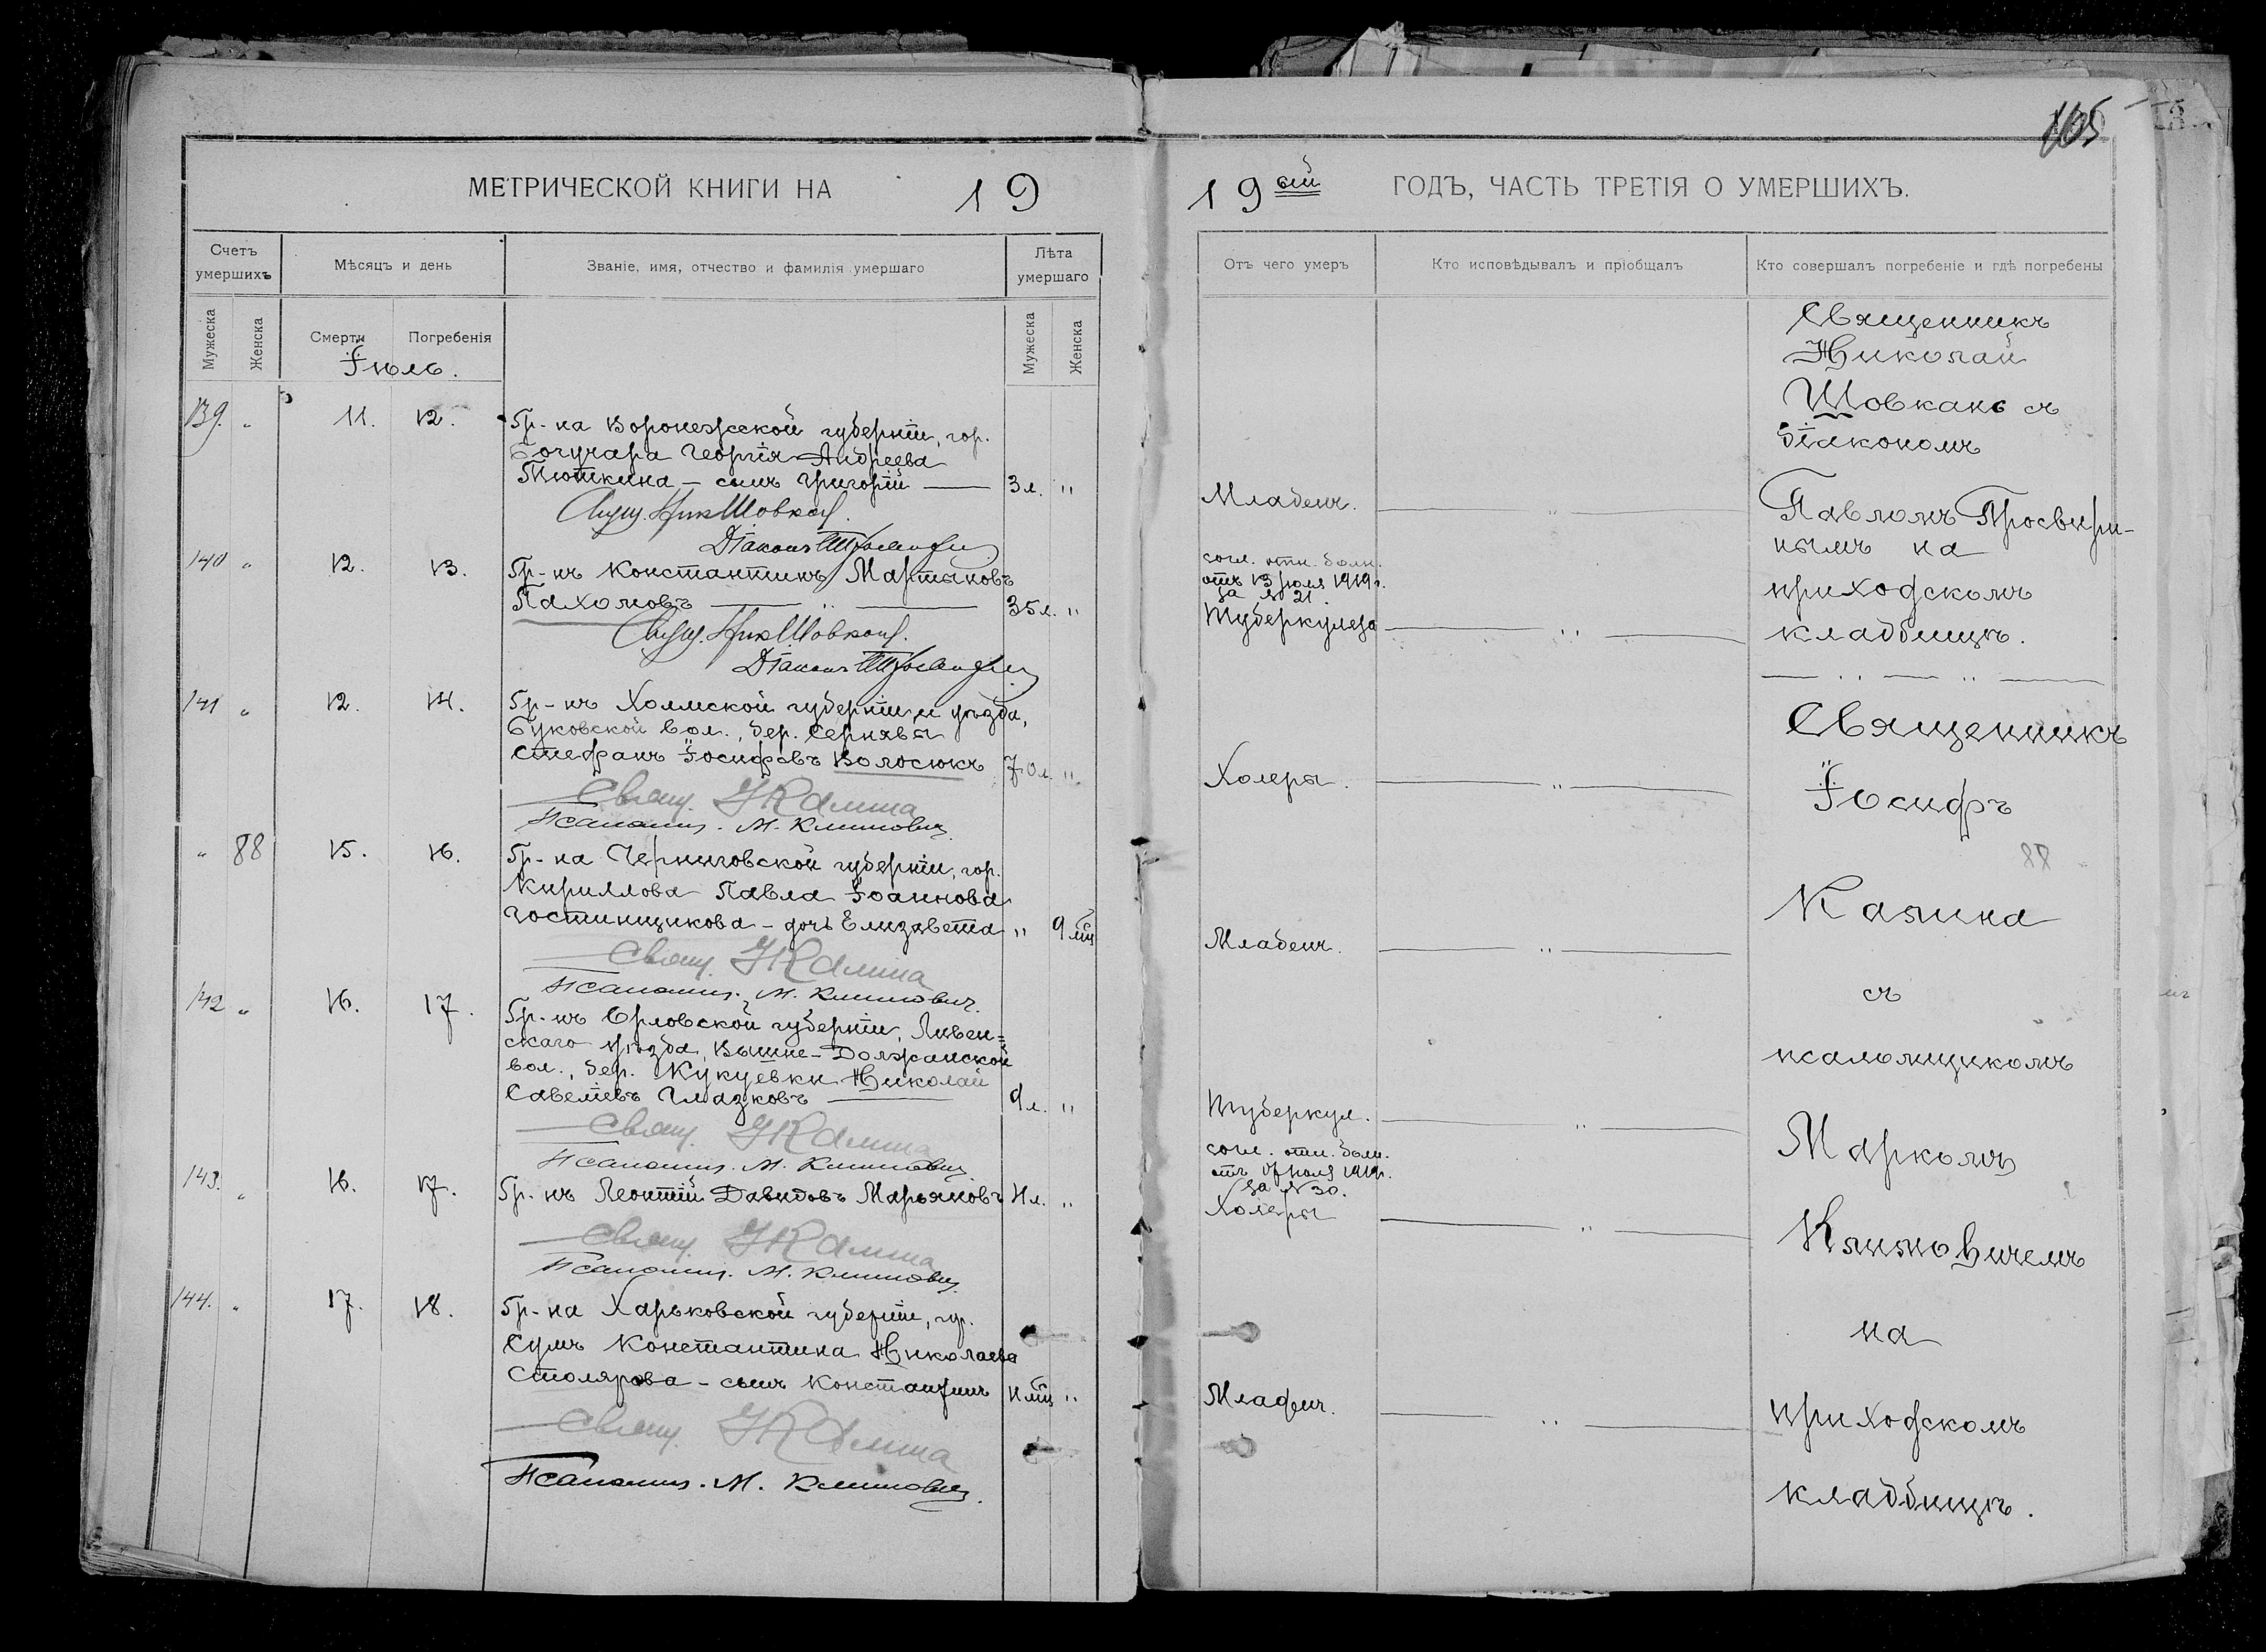 165
МЕТРИЧЕСКОЙ КНИГИ НА 19
19 ый ГОДЪ, ЧАСТЬ ТРЕТІЯ О УМЕРШИХЪ.
Счетъ умершихъ
Мѣсяцъ и день
Званіе, имя, отчество и фамилія умершаго
Лѣта умершаго
Мужеска
Женска
Смерти
Погребенія
Мужеска
Женска
Іюль.
139. " 11. 12. Гр-на Воронежской губерніи, гор.
Богучара Георгія Андреева
Тюткина - сынъ Григорій 3 л. "
Свящ. Ник Шовкан
Діаконъ
140 " 12. 13. Гр-нъ Константинъ Мартыновъ
Пахомовъ " 35 л. "
Свящ. Ник Шовкан.
Діаконъ
141 " 12. 14. Гр-нъ Холмской губерніи и уѣзда,
Буковской вол., дер. Сернявы
Стефанъ Іосифовъ Волосюкъ 70 л. "
Свящ. І Калина
Псаломщ. М. Климович
" 88 15. 16. Гр-на Черниговской губерніи, гор.
Кириллова Павла Іоаннова
Гостинщикова - дочь Елизавета " 9 мц
Свящ. І Калина
Псаломщ. М. Климович.
142 " 16. 17. Гр-нъ Орловской губерніи, Ливен=
скаго уѣзда, Вышне-Должанской
вол., дер. Кукуевки Николай
Савеліевъ Глазковъ 9 л. "
Свящ. І Калина
Псаломщ. М. Климович
143. " 16. 17. Гр-нъ Леонтій Давидовъ Марьяновъ 41 л. "
Свящ. І Калина
Псаломщ. М. Климович.
144. " 17. 18. Гр-на Харьковской губерніи, гор.
Сумъ Константина Николаева
Столярова - сынъ Константинъ 11 мц "
Свящ. І Калина
Псаломщ. М. Климович.
Отъ чего умеръ
Кто исповѣдывалъ и пріобщалъ
Кто совершалъ погребеніе и гдѣ погребены
Младенч. "
согл. отн. больн.
отъ 13 іюля 1919 г.
за № 21.
Туберкулеза "
Холеры. "
Младенч. "
Туберкул. "
согл. отн. больн.
отъ іюля 1919 г.
за № 30.
Холеры "
Младенч. "
Священникъ
Николай
Шовканъ съ
діакономъ
Павломъ Просвири-
нымъ на
приходскомъ
кладбищѣ.
Священникъ
Іосифъ
88
Калина
съ
псаломщикомъ
Маркомъ
Климовичемъ
на
приходскомъ
кладбищѣ.